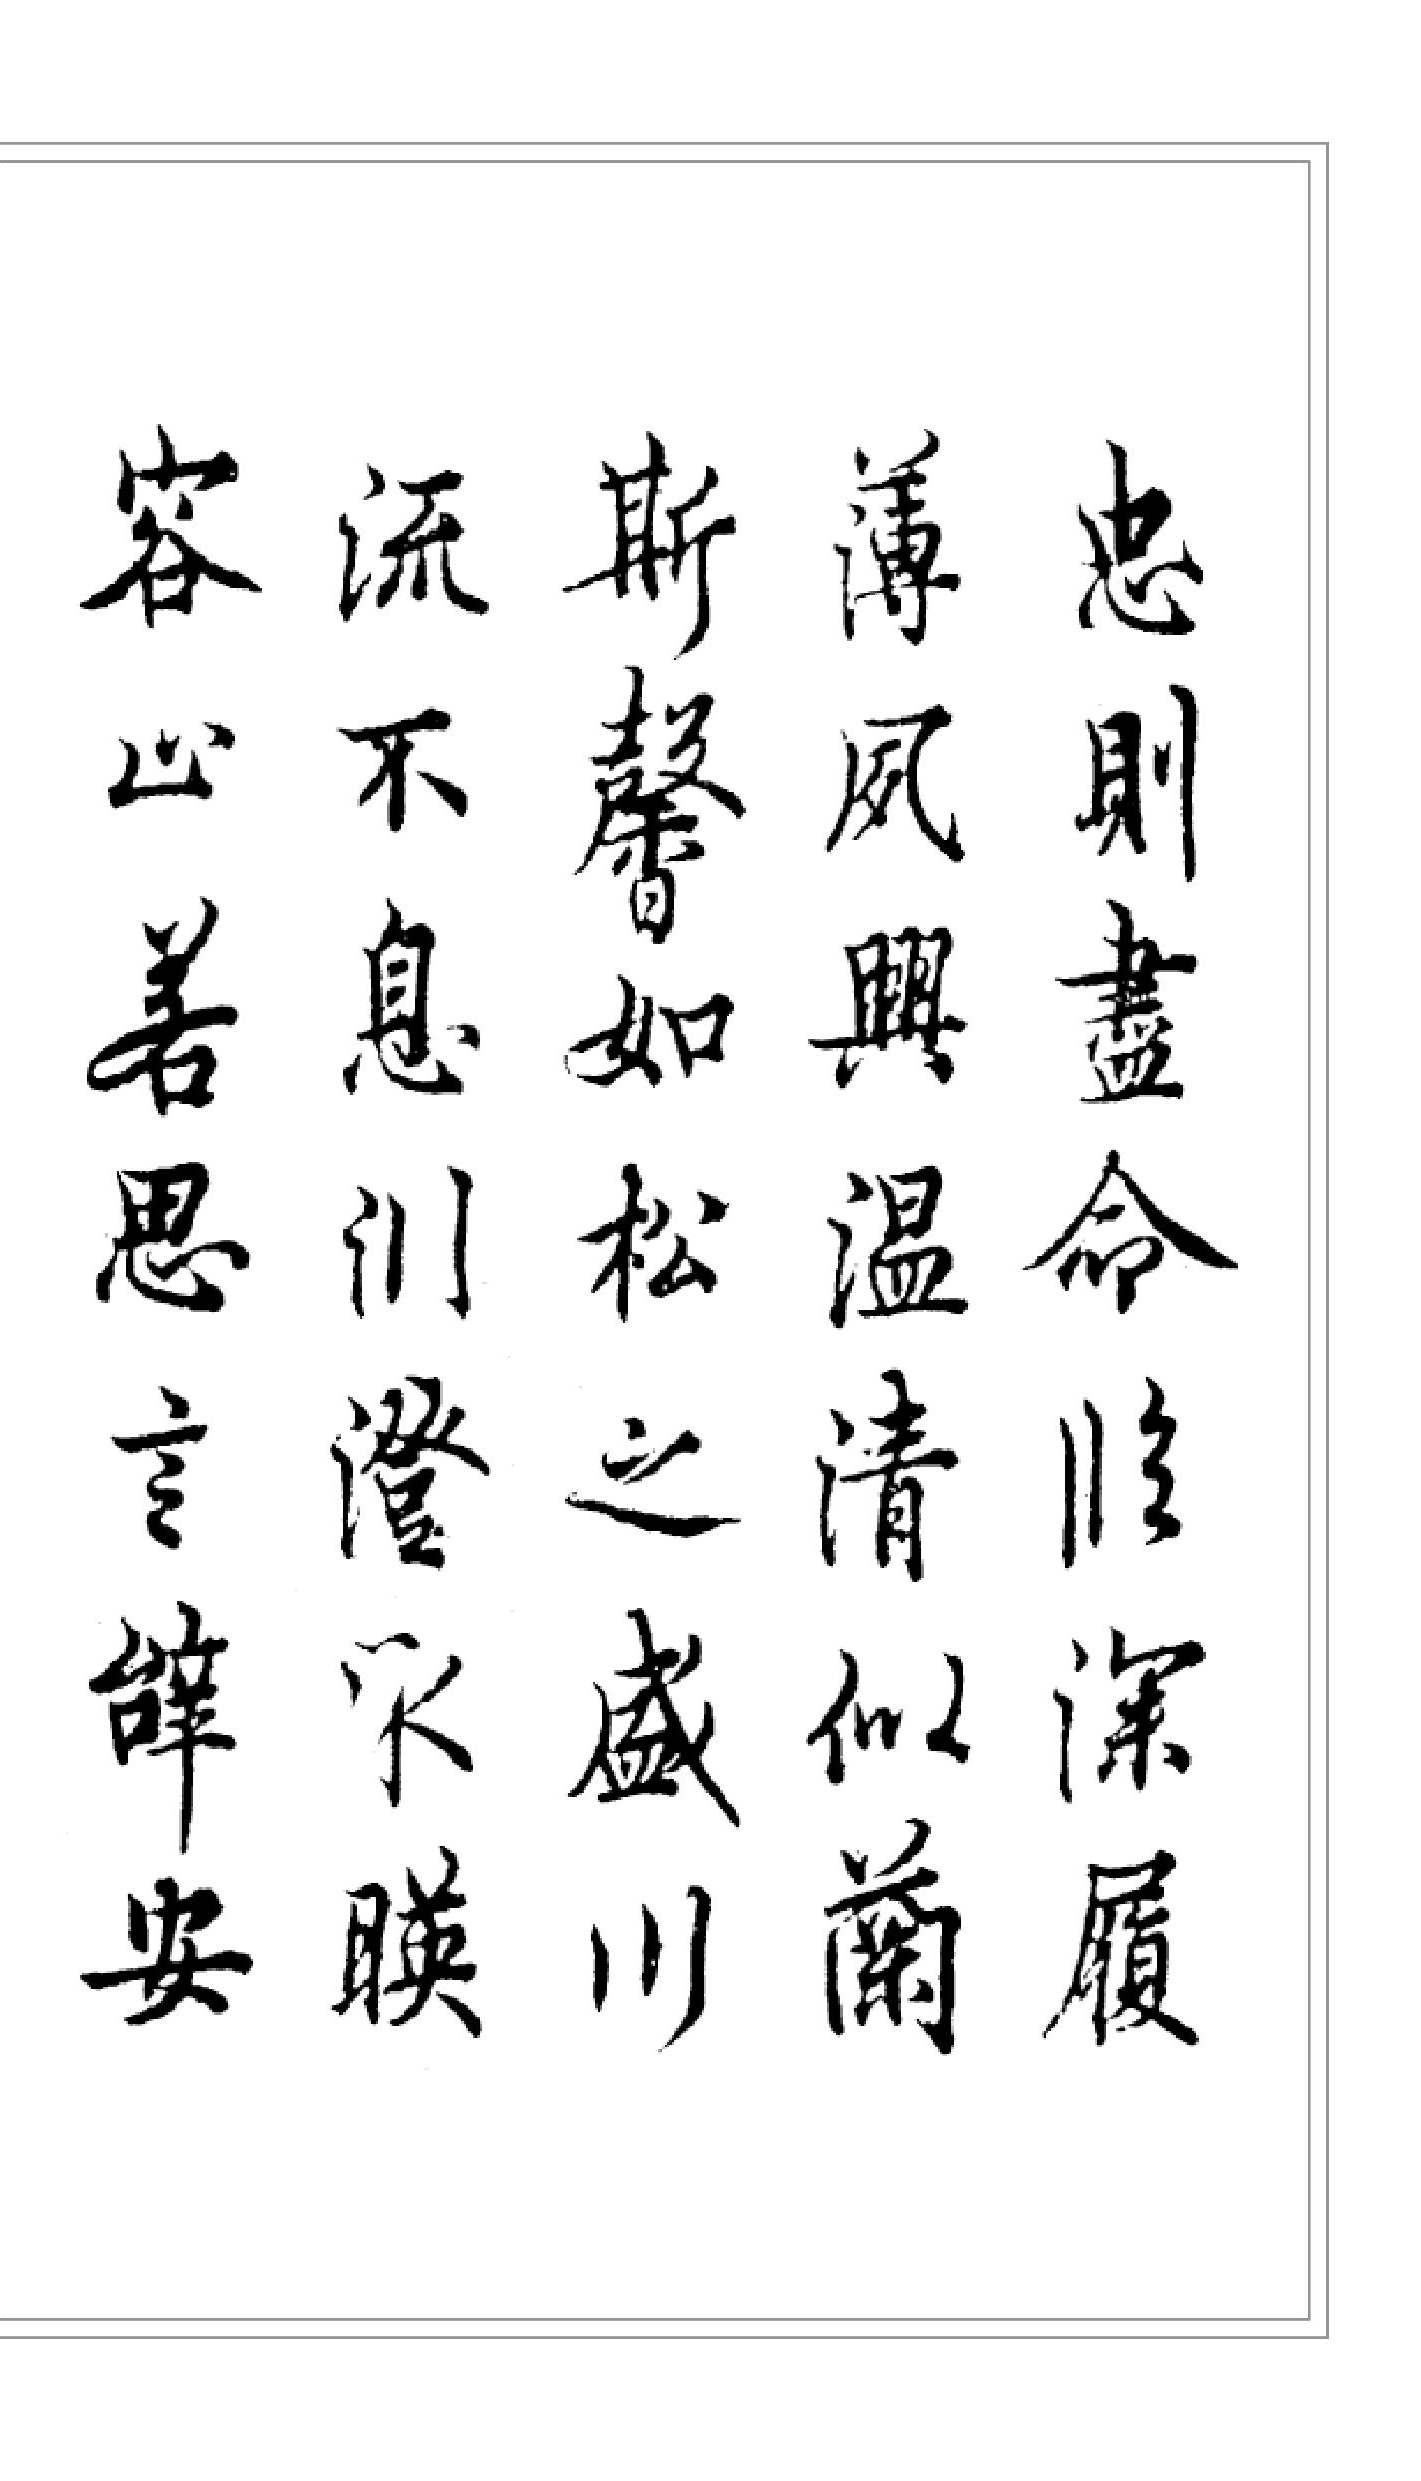 忠則盡命臨深履
薄夙興温凊似蘭
斯馨如松之盛川
流不息川澄取暎
容止若思言辭安